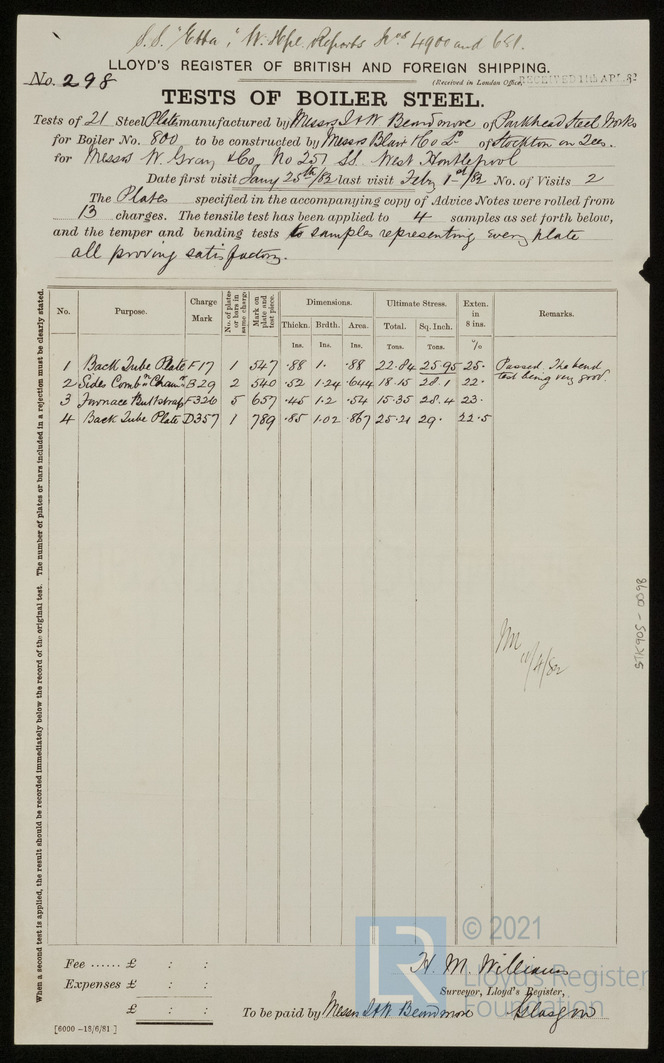 S.S. "Etta", W. Hpl. Reports Nos 4900 and 651.
LLOYD'S REGISTER OF BRITISH AND FOREIGN SHIPPING.
No. 298
(Received in London Office RECEIVED 11th APL 82
TESTS OF BOILER STEEL.
Tests of 21 Steel Plates manufactured by Messrs I & W Beardmore of Parkhead Steel Works
for Boiler No. 800 to be constructed by Messrs Blair & Co Ld of Stockton on Tees.
for Messrs W. Gray & Co, No 251 SS. West Hartlepool
Date first visit Jany 25th/82 last visit Feby 1st/82 No. of Visits 2
The Plates specified in the accompanying copy of Advice Notes were rolled from
13 charges. The tensile test has been applied to 4 samples as set forth below,
and the temper and bending tests to samples representing every plate
all proving satisfactory.
No. Purpose. Charge Mark No. of plates or bars in same charge Mark on plate and test piece. Dimensions. Ultimate Stress. Exten. in 8 ins. Remarks.
Thickn. Brdth. Area. Total. Sq. Inch.
Ins. Ins. Ins. Tons. Tons. %
1 Back Tube Plate F17 1 547 .88 1. .88 22.84 25.95 25. Passed. The bend
2 Sides Combn Chamr B29 2 540 .52 1.24 .644 18.15 28.1 22. test being very good.
3 Furnace Buttstrap F326 5 657 .45 1.2 .54 15.35 28.4 23.
4 Back Tube Plate D357 1 789 .85 1.02 .867 25.21 29. 22.5
When a second test is applied, the result should be recorded immediately below the record of the original test. The number of plates or bars included in a rejection must be clearly stated.
STK905-0098
11/4/82
© 2021
LR
Lloyd's Register
Foundation
Fee ...... £ : :
Expenses £ : :
£ : :
H. M. Williams
Surveyor, Lloyd's Register,
To be paid by Messrs I & W Beardmore Glasgow
[6000 -18/6/81 ]